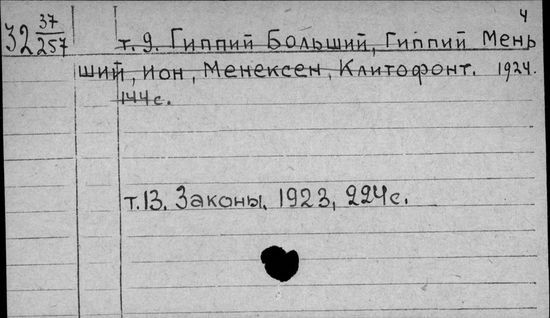 4
32 37/257 т. 9. Гиппий Больший, Гиппий Мень
ший, Ион, Менексен, Клитофонт. 1924.
144 с.
т. 13. Законы. 1923, 224 с.